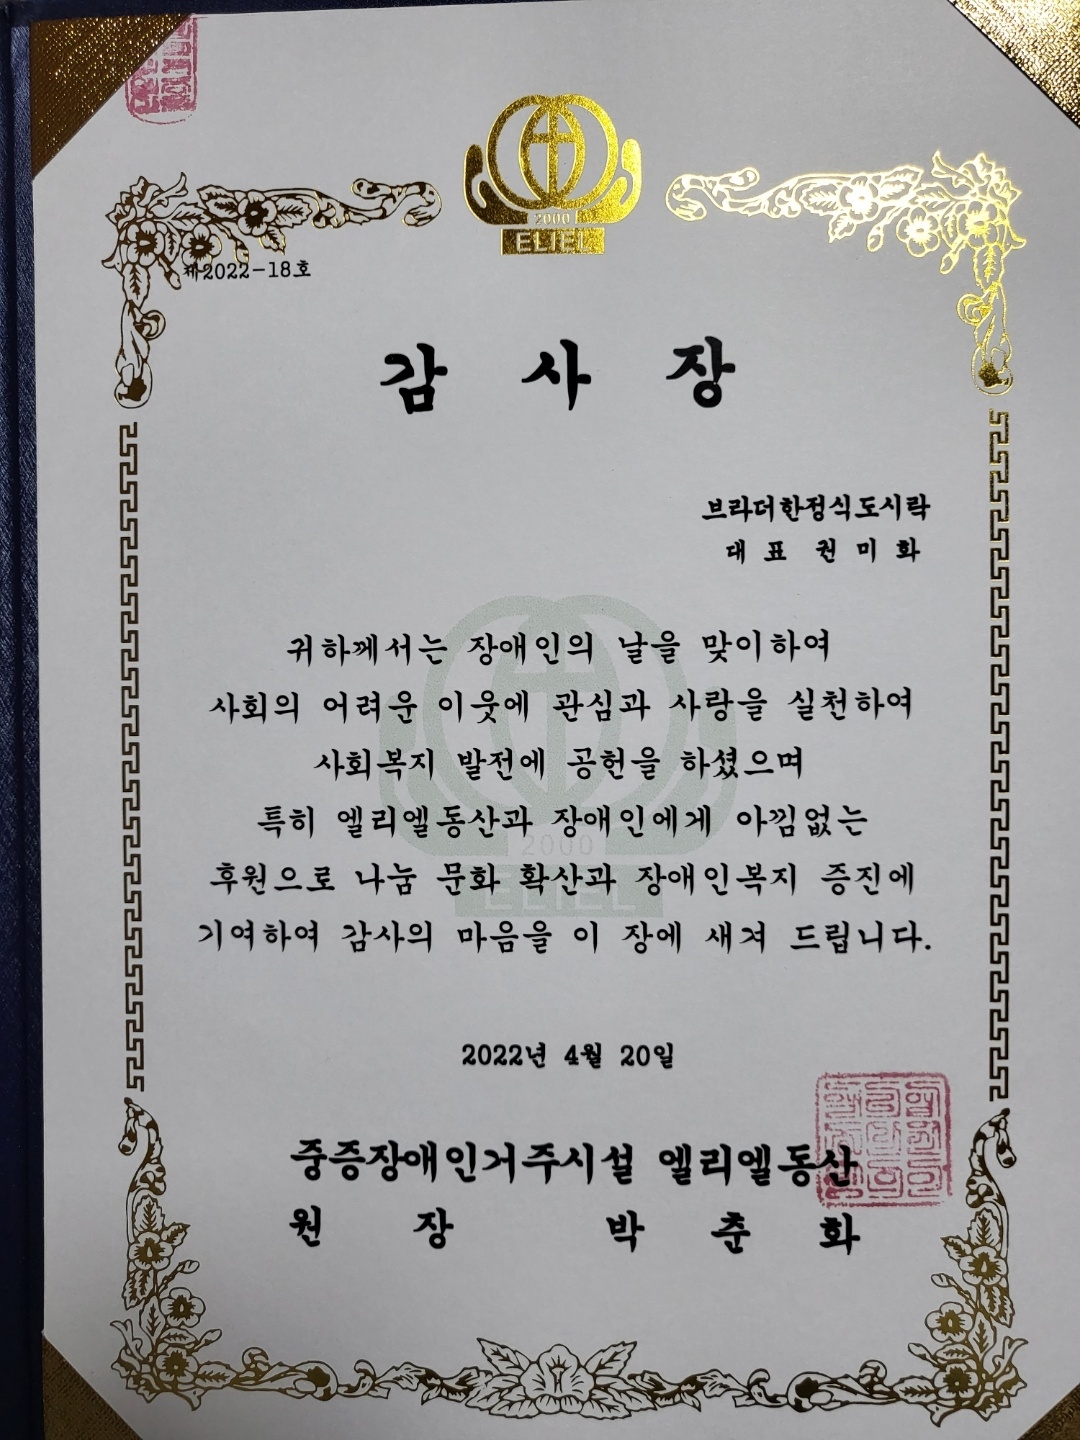 2000
ELIEL
제2022-18호
감 사 장
브라더한정식도시락
대 표 권 미 화
귀하께서는 장애인의 날을 맞이하여
사회의 어려운 이웃에 관심과 사랑을 실천하여
사회복지 발전에 공헌을 하셨으며
특히 엘리엘동산과 장애인에게 아낌없는
후원으로 나눔 문화 확산과 장애인복지 증진에
기여하여 감사의 마음을 이 장에 새겨 드립니다.
2000
ELIEL
2022년 4월 20일
중증장애인거주시설 엘리엘동산
원 장 박 춘 화